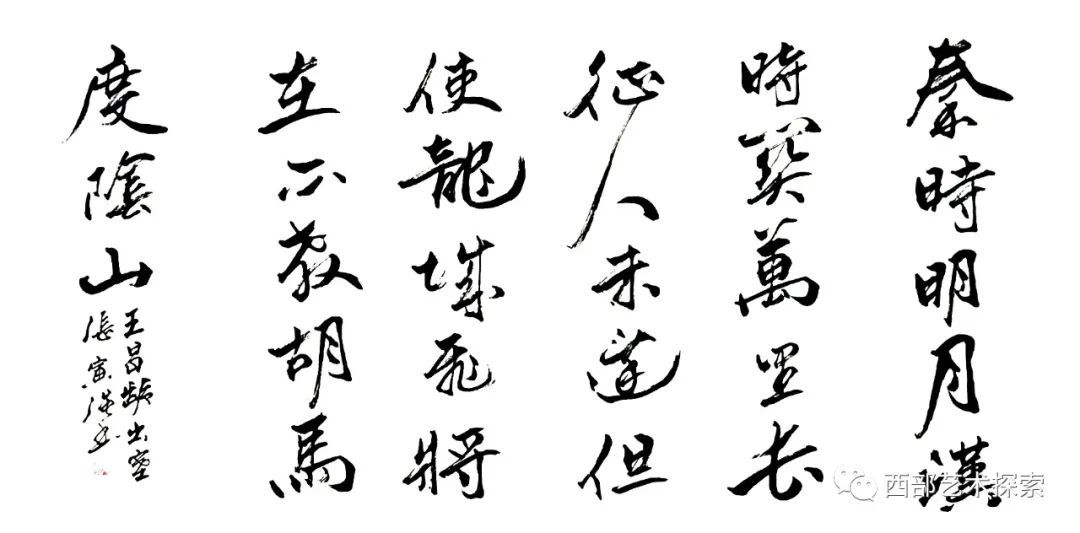 秦時明月漢
時關萬里長
征人未還但
使龍城飛將
在不教胡馬
度陰山
王昌齡出塞
張寅
西部艺术探索